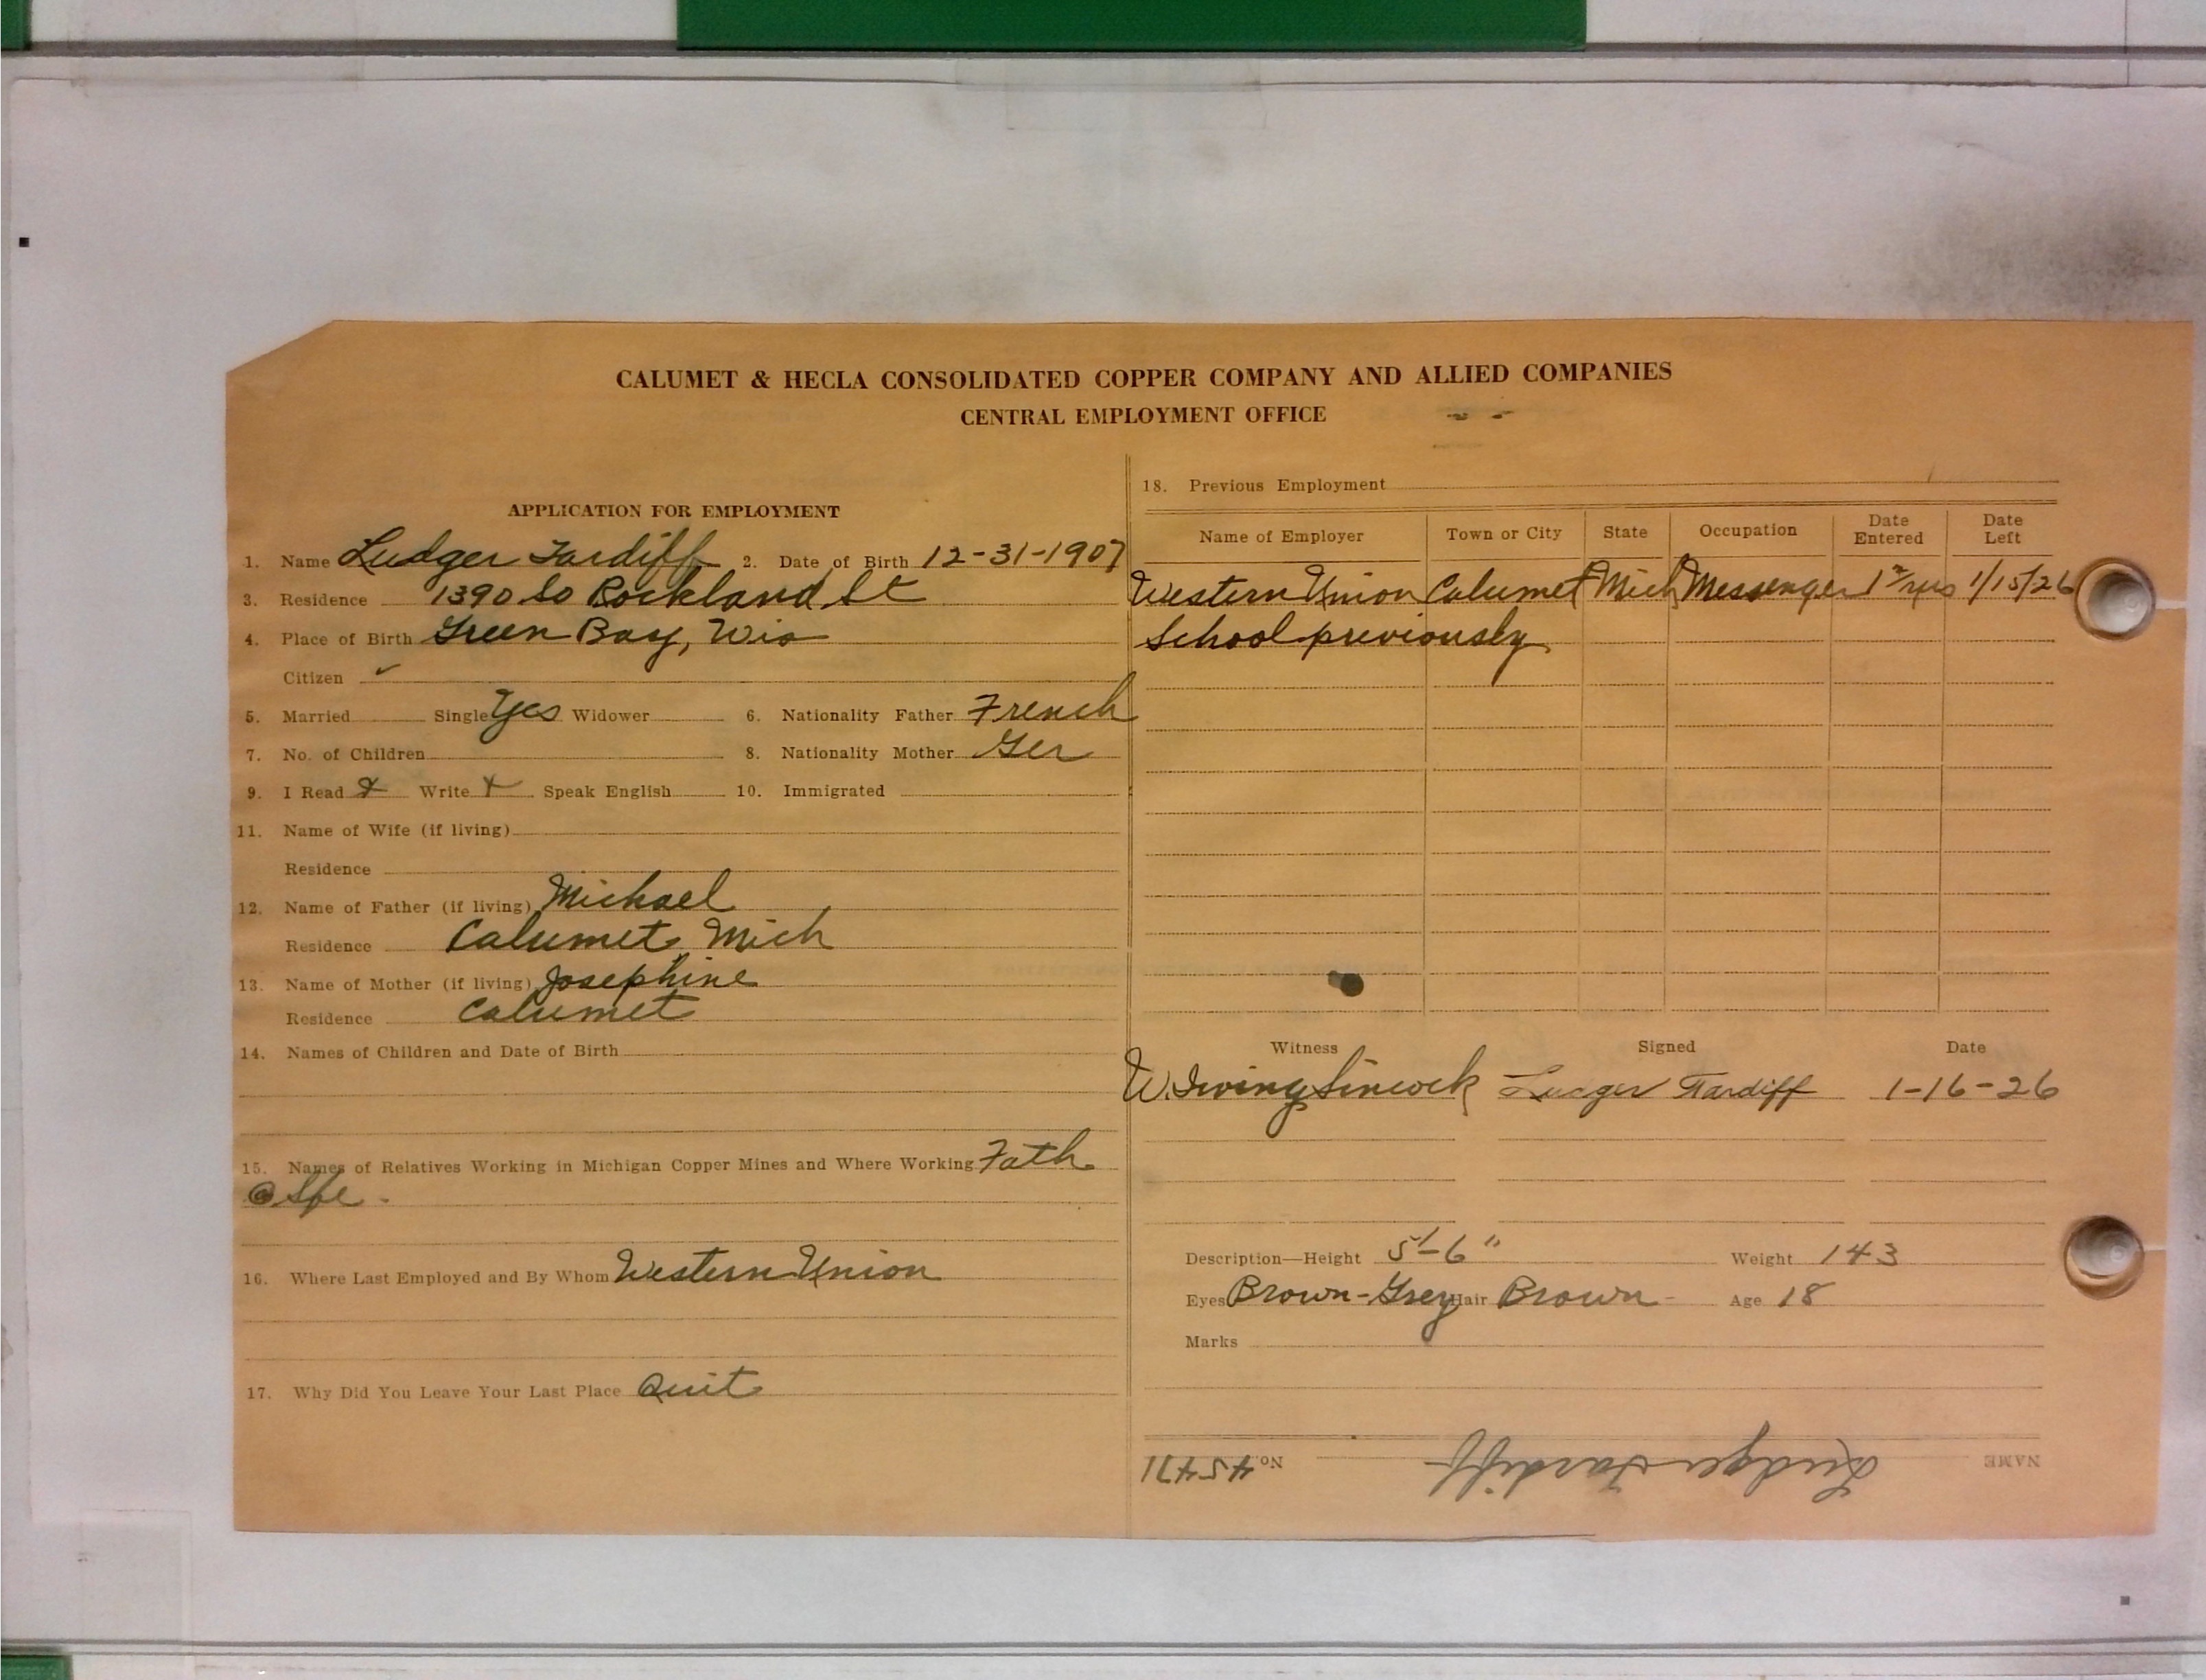 CALUMET & HECLA CONSOLIDATED COPPER COMPANY AND ALLIED COMPANIES
CENTRAL EMPLOYMENT OFFICE
APPLICATION FOR EMPLOYMENT
1. Name Ludger Tardiff 2. Date of Birth 12-31-1907
3. Residence 1390 So Rockland St
4. Place of Birth Green Bay, Wis
Citizen ✓
5. Married Single Yes Widower 6. Nationality Father French
7. No. of Children 8. Nationality Mother Ger
9. I Read X Write X Speak English 10. Immigrated
11. Name of Wife (if living)
Residence
12. Name of Father (if living) Michael
Residence Calumet Mich
13. Name of Mother (if living) Josephine
Residence Calumet
14. Names of Children and Date of Birth
15. Names of Relatives Working in Michigan Copper Mines and Where Working Fath
@
16. Where Last Employed and By Whom Western Union
17. Why Did You Leave Your Last Place Quit
18. Previous Employment
Name of Employer Town or City State Occupation Date Entered Date Left
Western Union Calumet Mich Messenger 1/15/26
School previously
Witness Signed Date
W. Irving Sincock Ludger Tardiff 1-16-26
Description—Height 5'-6" Weight 143
Eyes Brown-Grey Hair Brown Age 18
Marks
NAME Ludger Tardiff No. 45471